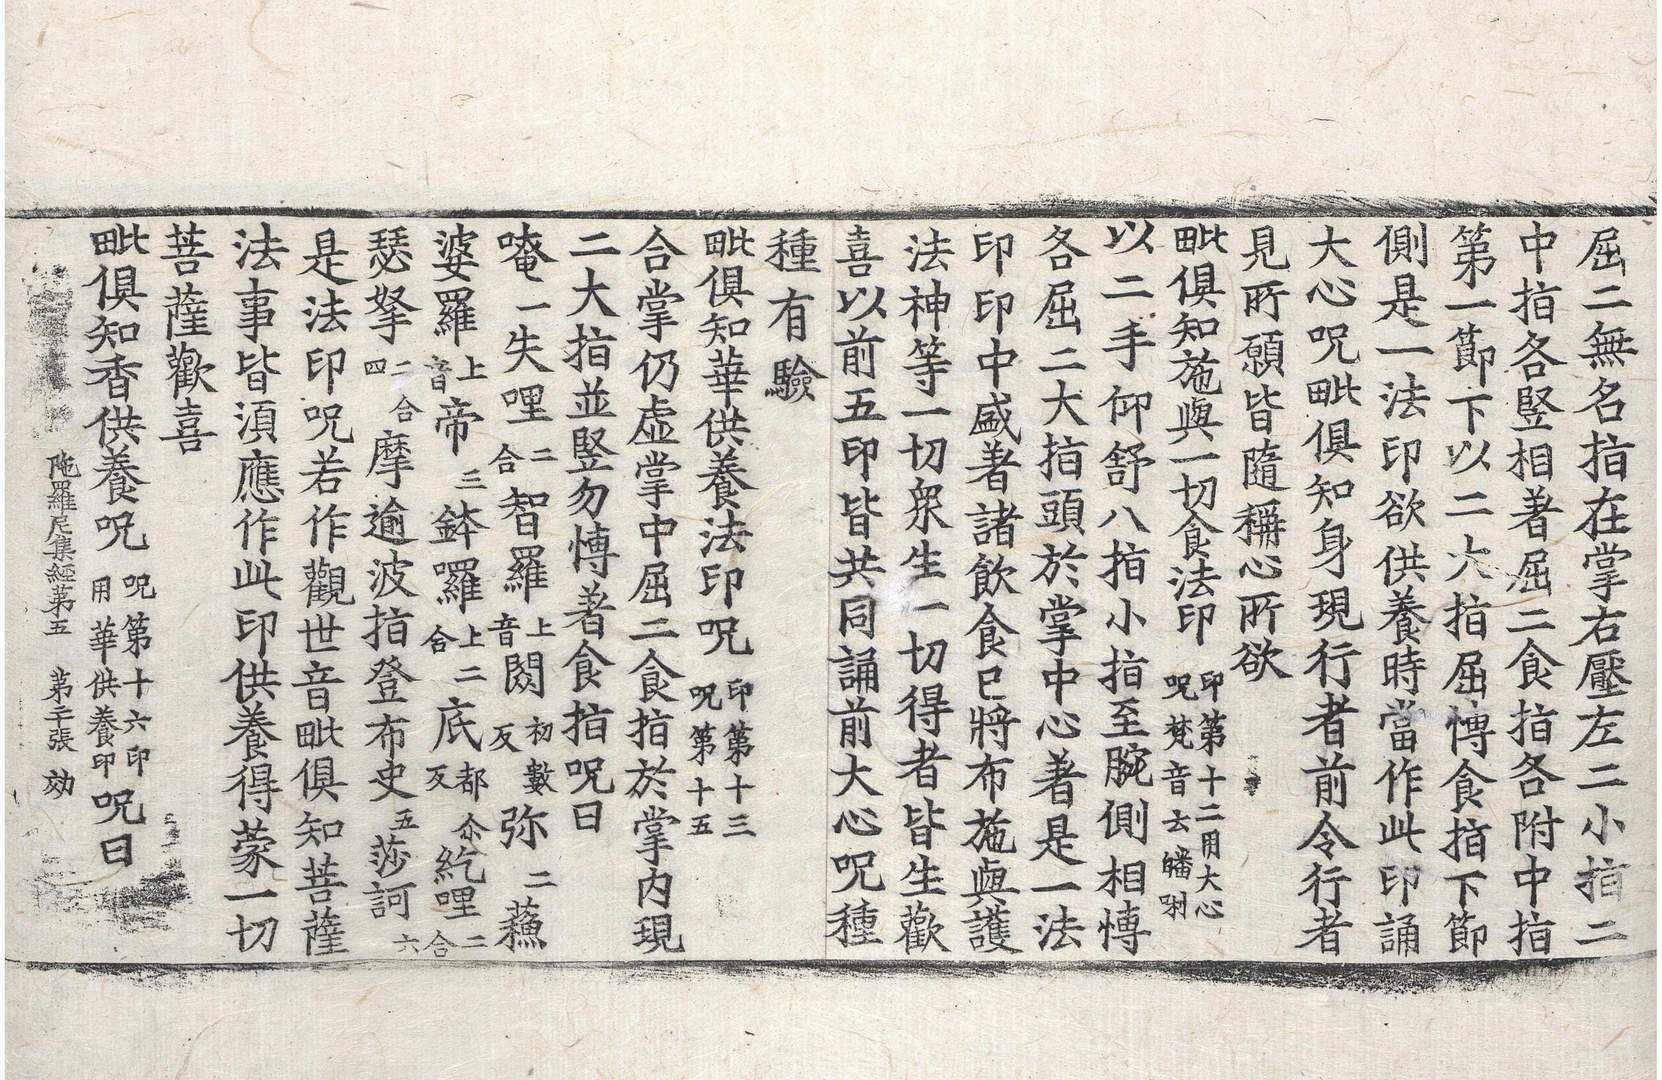 屈二無名指在掌右壓左二小指二
中指各竪相著屈二食指各附中指
第一節下以二大指屈愽食指下節
側是一法印欲供養時當作此印誦
大心呪毗俱知身現行者前令行者
見所願皆隨稱心所欲
毗俱知施與一切食法印 印第十二用大心呪梵音去皤𠯈
以二手仰舒八指小指至腕側相愽
各屈二大指頭於掌中心著是一法
印印中盛著諸飲食已將布施與護
法神等一切衆生一切得者皆生歡
喜以前五印皆共同誦前大心呪種
種有驗
毗俱知華供養法印呪 印第十三呪第十五
合掌仍虛掌中屈二食指於掌內現
二大指並竪勿愽著食指呪曰
唵一失哩二合智羅上音閦初數反弥二蘓
婆羅上音帝三鉢囉上二合底都尒反紇哩二合
瑟拏二合四摩逾波指登布史五莎訶六
是法印呪若作觀世音毗俱知菩薩
法事皆湏應作此印供養得蒙一切
菩薩歡喜
毗俱知香供養呪 呪第十六印用華供養印呪曰
陁羅尼集經第五 第二十張 効